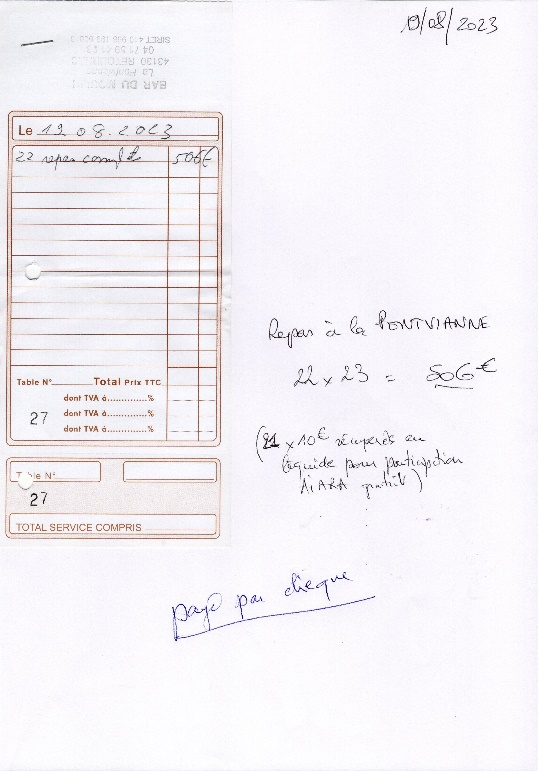 19/08/2023
BAR DU
La
43130 RETOURNAC
04 71 59 41 23
SIRET 413 936 189 000
Le 19 08.2023
22 repas complet 506€
Table N° Total Prix TTC
dont TVA à.............%
27 dont TVA à.............%
dont TVA à.............%
Table N°
27
TOTAL SERVICE COMPRIS
Repas à la PONTVIANNE
22 x 23 = 506€
(21 x 10€ récupérés en
liquide pour participation
gratuit)
payé par chèque